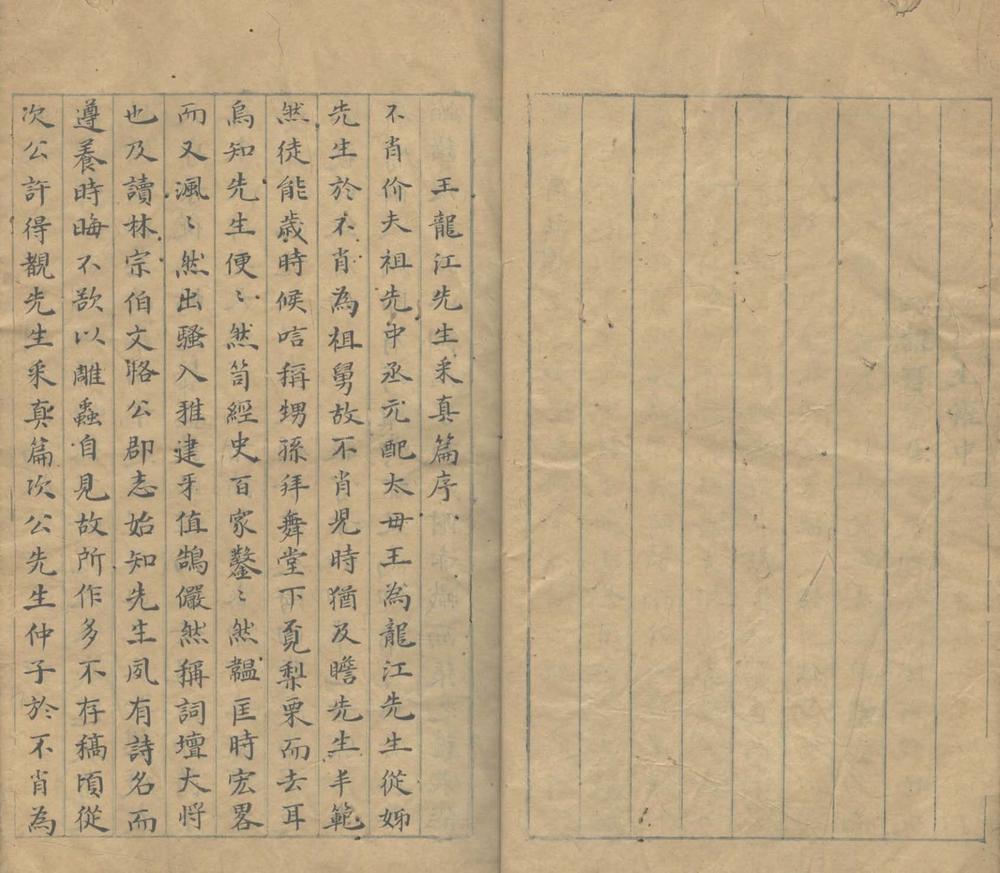 王龍江先生采真篇序
不肖价夫祖先中丞元配太毌王為龍江先生從姊
先生於不肖為祖舅故不肖兒時猶及瞻先生丰範
然徒能歳時候唁稱甥孫拜舞堂下覔梨栗而去耳
烏知先生便〻然笥經史百家鑿〻然韞匡時宏畧
而又渢〻然出騷入雅建牙值鵠儼然稱詞壇大將
也及讀林宗伯文恪公郡志始知先生夙有詩名而
遵養時晦不欲以雕蟲自見故所作多不存稿頃從
次公許得覩先生采真篇次公先生仲子於不肖為